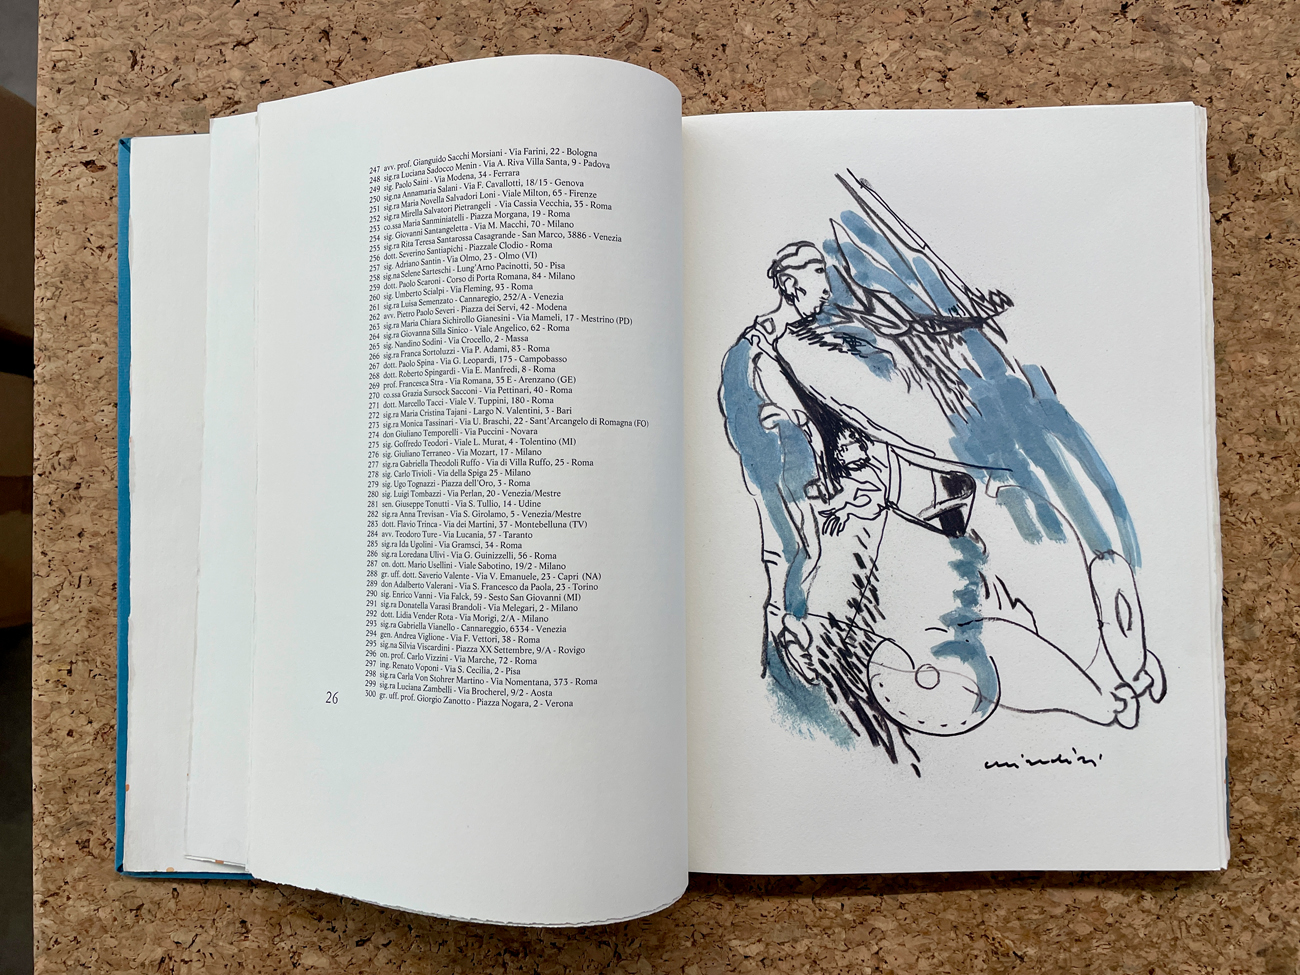 247 avv. prof. Gianguido Sacchi Morsiani - Via Farini, 22 - Bologna
248 sig.ra Luciana Sadocco Menin - Via A. Riva Villa Santa, 9 - Padova
249 sig. Paolo Saini - Via Modena, 34 - Ferrara
250 sig.na Annamaria Salani - Via F. Cavallotti, 18/15 - Genova
251 sig.ra Maria Novella Salvadori Loni - Viale Milton, 65 - Firenze
252 sig.ra Mirella Salvatori Pietrangeli - Via Cassia Vecchia, 35 - Roma
253 co.ssa Maria Sanminiatelli - Piazza Morgana, 19 - Roma
254 sig. Giovanni Santangeletta - Via M. Macchi, 70 - Milano
255 sig.ra Rita Teresa Santarossa Casagrande - San Marco, 3886 - Venezia
256 dott. Severino Santiapichi - Piazzale Clodio - Roma
257 sig. Adriano Santin - Via Olmo, 23 - Olmo (VI)
258 sig.na Selene Sarteschi - Lung'Arno Pacinotti, 50 - Pisa
259 dott. Paolo Scaroni - Corso di Porta Romana, 84 - Milano
260 sig. Umberto Scialpi - Via Fleming, 93 - Roma
261 sig.ra Luisa Semenzato - Cannaregio, 252/A - Venezia
262 avv. Pietro Paolo Severi - Piazza dei Servi, 42 - Modena
263 sig.ra Maria Chiara Sichirollo Gianesini - Via Mameli, 17 - Mestrino (PD)
264 sig.ra Giovanna Silla Sinico - Viale Angelico, 62 - Roma
265 sig. Nandino Sodini - Via Crocello, 2 - Massa
266 sig.ra Franca Sortoluzzi - Via P. Adami, 83 - Roma
267 dott. Paolo Spina - Via G. Leopardi, 175 - Campobasso
268 dott. Roberto Spingardi - Via E. Manfredi, 8 - Roma
269 prof. Francesca Stra - Via Romana, 35 E - Arenzano (GE)
270 co.ssa Grazia Sursock Sacconi - Via Pettinari, 40 - Roma
271 dott. Marcello Tacci - Viale V. Tuppini, 180 - Roma
272 sig.ra Maria Cristina Tajani - Largo N. Valentini, 3 - Bari
273 sig.ra Monica Tassinari - Via U. Braschi, 22 - Sant'Arcangelo di Romagna (FO)
274 don Giuliano Temporelli - Via Puccini - Novara
275 sig. Goffredo Teodori - Viale L. Murat, 4 - Tolentino (MI)
276 sig. Giuliano Terraneo - Via Mozart, 17 - Milano
277 sig.ra Gabriella Theodoli Ruffo - Via di Villa Ruffo, 25 - Roma
278 sig. Carlo Tivioli - Via della Spiga 25 - Milano
279 sig. Ugo Tognazzi - Piazza dell'Oro, 3 - Roma
280 sig. Luigi Tombazzi - Via Perlan, 20 - Venezia/Mestre
281 sen. Giuseppe Tonutti - Via S. Tullio, 14 - Udine
282 sig.ra Anna Trevisan - Via S. Girolamo, 5 - Venezia/Mestre
283 dott. Flavio Trinca - Via dei Martini, 37 - Montebelluna (TV)
284 avv. Teodoro Ture - Via Lucania, 57 - Taranto
285 sig.ra Ida Ugolini - Via Gramsci, 34 - Roma
286 sig.ra Loredana Ulivi - Via G. Guinizzelli, 56 - Roma
287 on. dott. Mario Usellini - Viale Sabotino, 19/2 - Milano
288 gr. uff. dott. Saverio Valente - Via V. Emanuele, 23 - Capri (NA)
289 don Adalberto Valerani - Via S. Francesco da Paola, 23 - Torino
290 sig. Enrico Vanni - Via Falck, 59 - Sesto San Giovanni (MI)
291 sig.ra Donatella Varasi Brandoli - Via Melegari, 2 - Milano
292 dott. Lidia Vender Rota - Via Morigi, 2/A - Milano
293 sig.ra Gabriella Vianello - Cannareggio, 6334 - Venezia
294 gen. Andrea Viglione - Via F. Vettori, 38 - Roma
295 sig.na Silvia Viscardini - Piazza XX Settembre, 9/A - Rovigo
296 on. prof. Carlo Vizzini - Via Marche, 72 - Roma
297 ing. Renato Voponi - Via S. Cecilia, 2 - Pisa
298 sig.ra Carla Von Stohrer Martino - Via Nomentana, 373 - Roma
299 sig.ra Luciana Zambelli - Via Brocherel, 9/2 - Aosta
300 gr. uff. prof. Giorgio Zanotto - Piazza Nogara, 2 - Verona
26